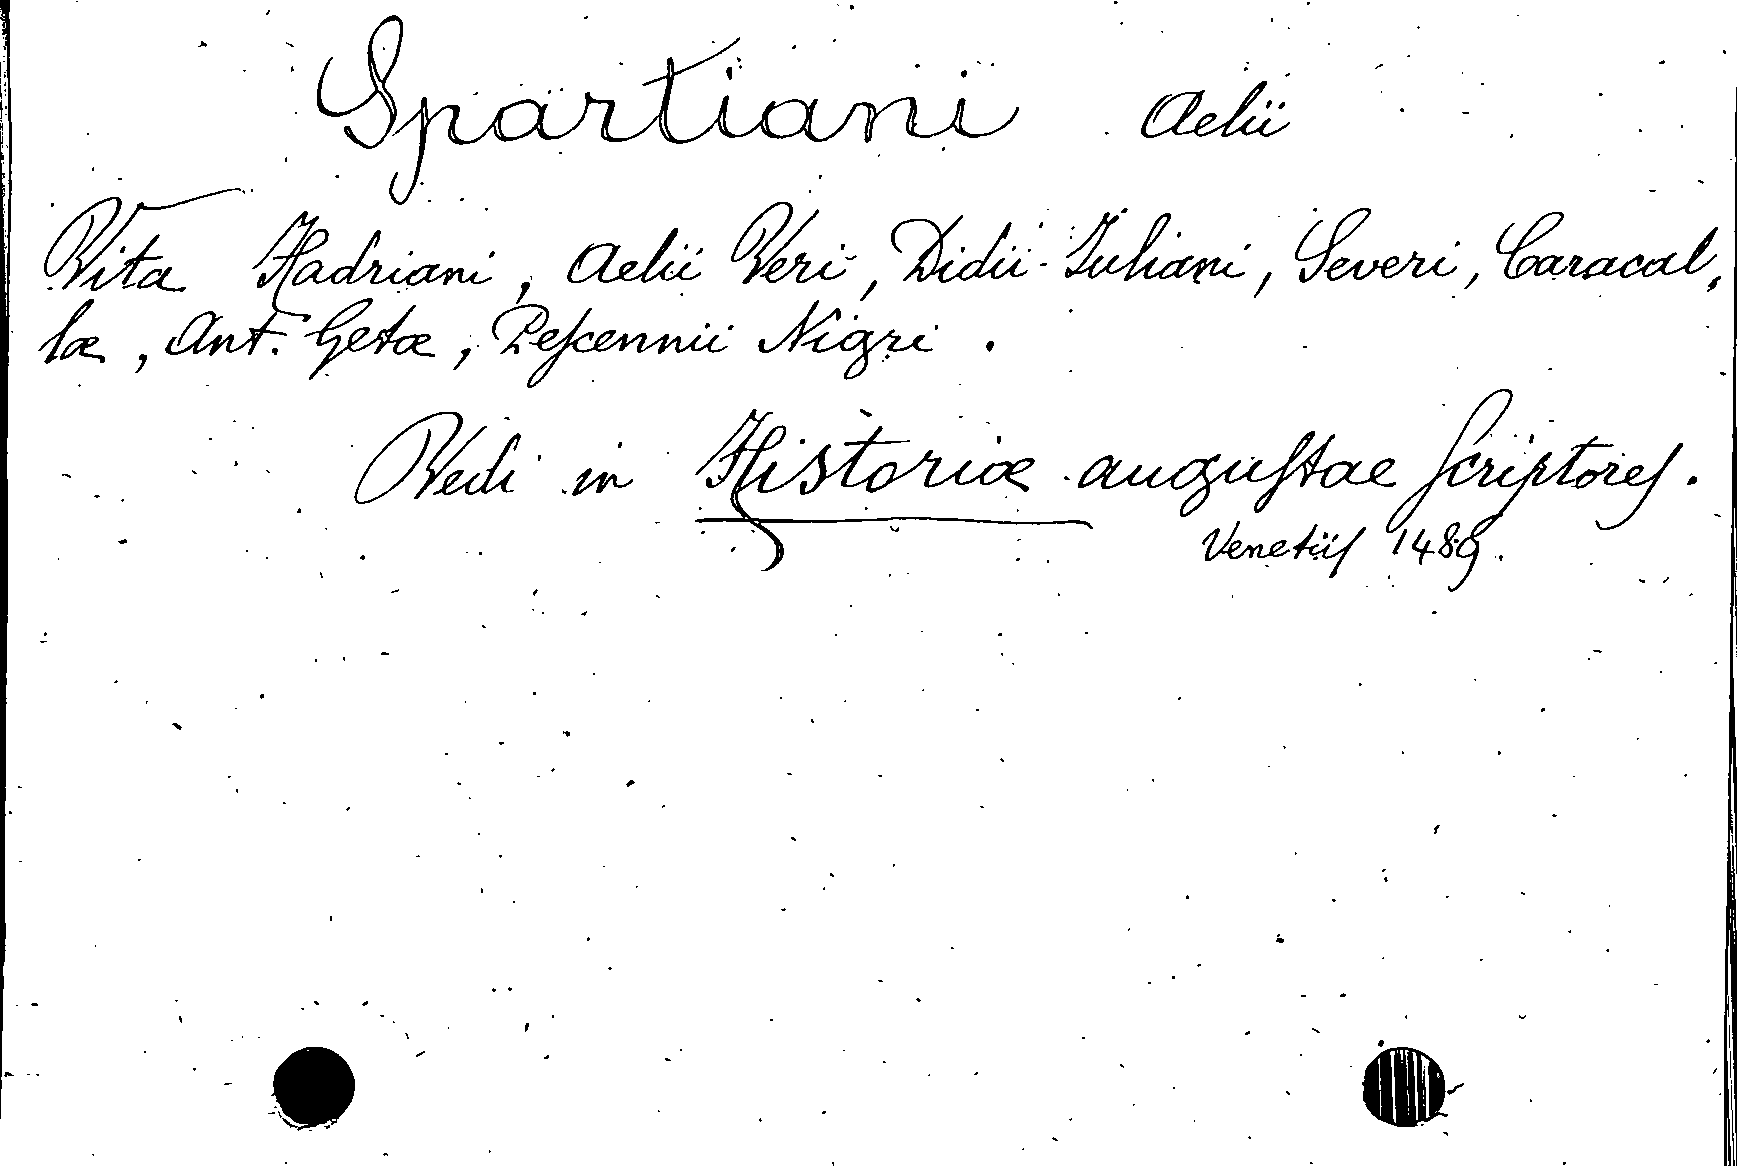 Spartiani Aelii
Vita Hadriani, Aelii Veri, Didii Iuliani, Severi, Caracal,
læ, Ant. Getæ, Peſcennii Nigri.
Vedi in Historiæ auguſtae ſcriptoreſ.
Venetiiſ 1489.